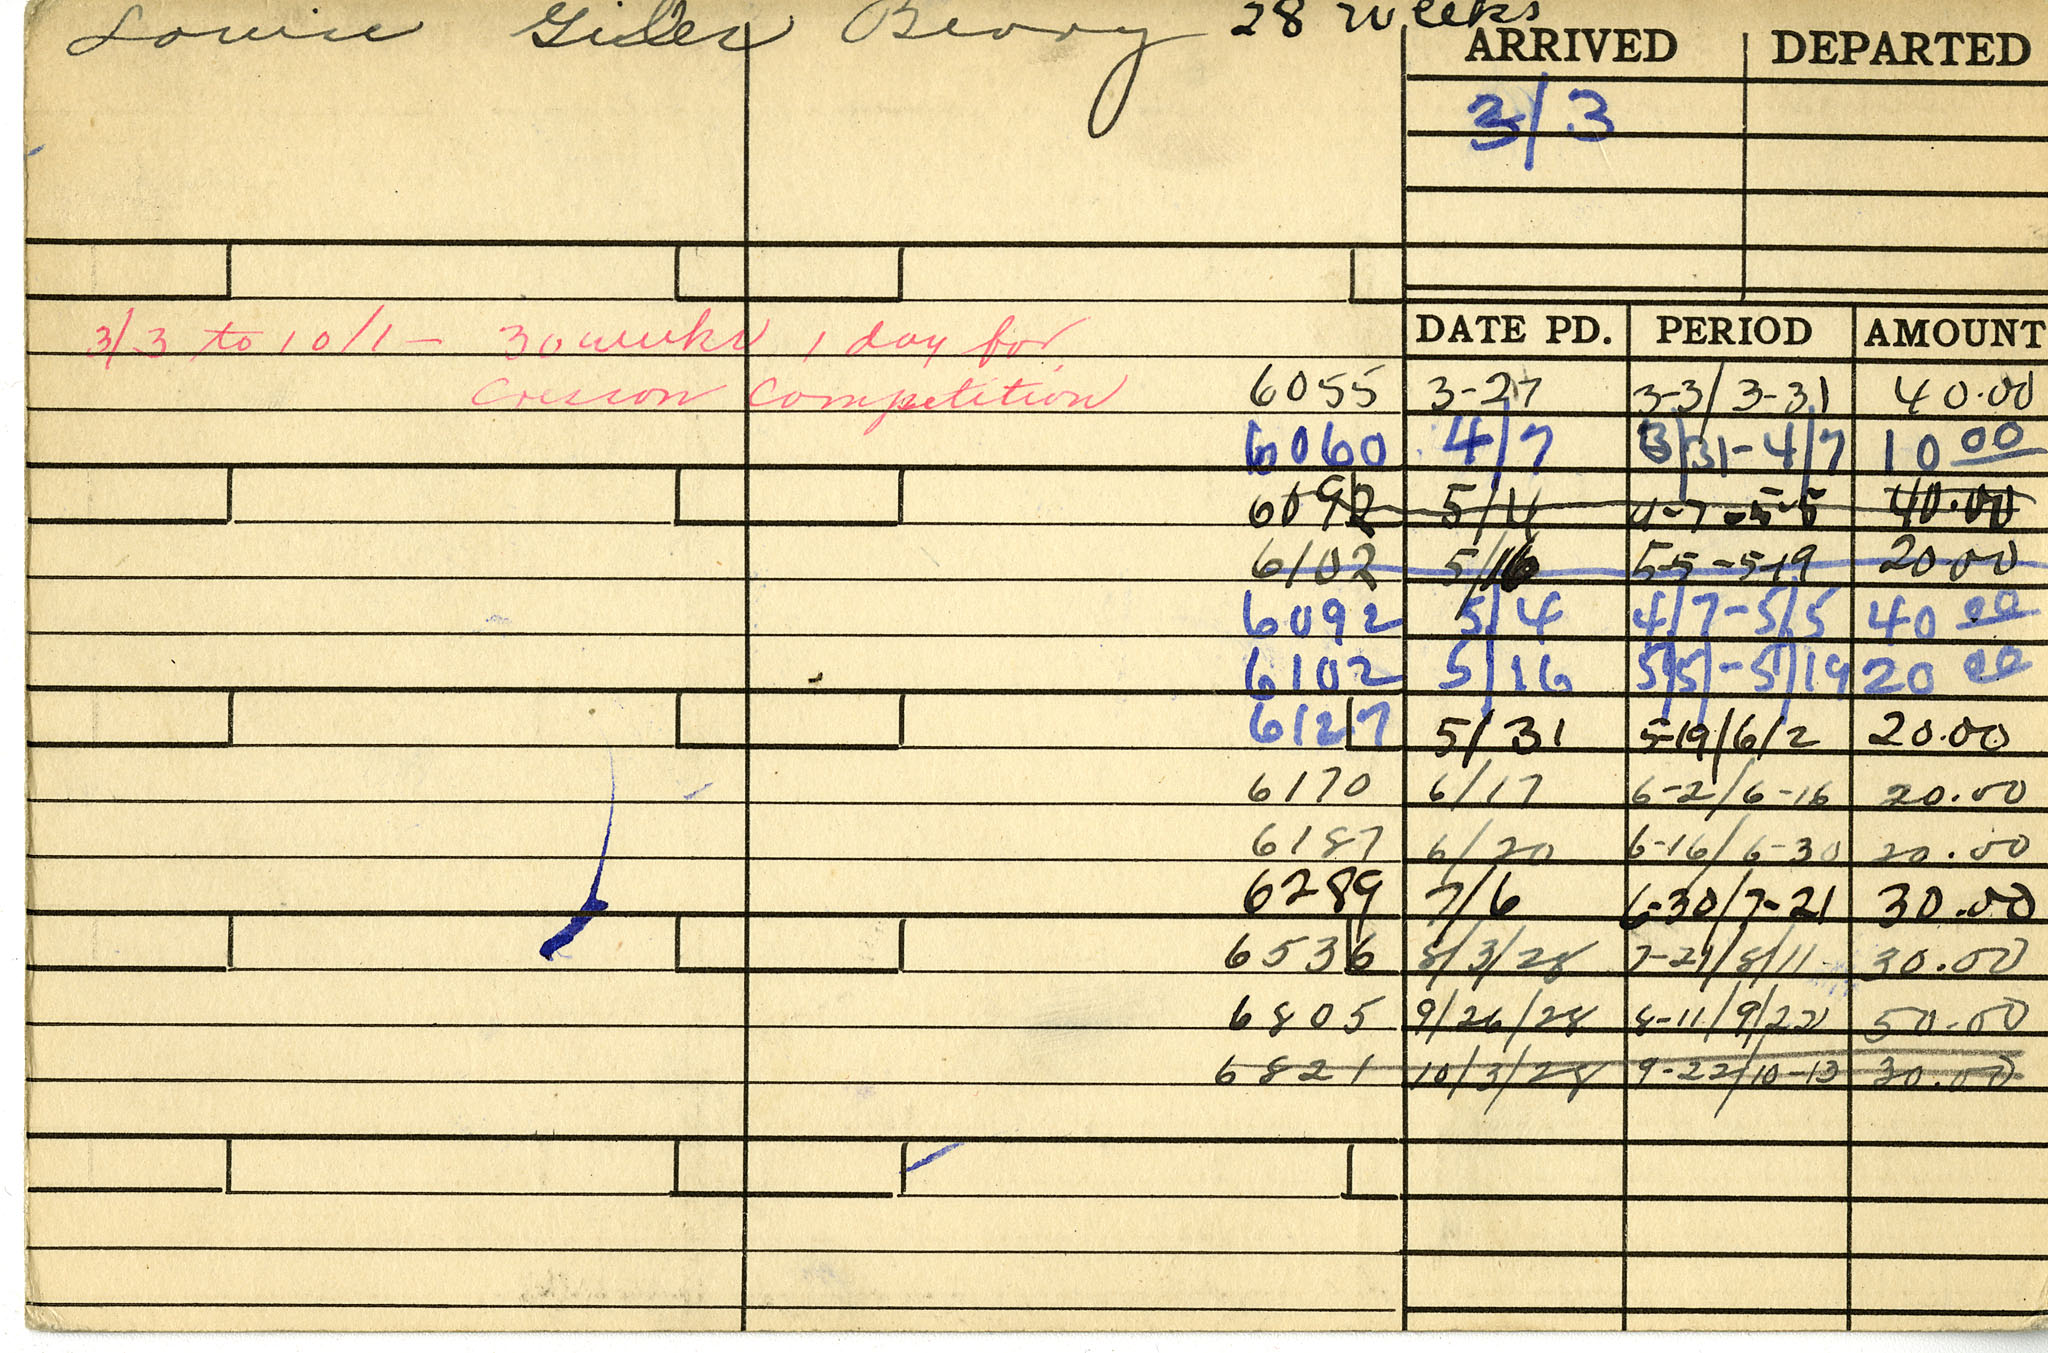 Louise Giles Berry 28 weeks
ARRIVED DEPARTED
3/3
3/3 to 10/1 - 30 weeks 1 day for
Cresson Competition
DATE PD. PERIOD AMOUNT
6055 3-27 3-3/3-31 40.00
6060 4/7 3/31-4/7 10 00
6092 5/4 4-7-5-5 40.00
6102 5/16 5-5-5-19 20.00
6092 5/4 4/7-5/5 40 00
6102 5/16 5/5-5/19 20 00
6127 5/31 5-19/6/2 20.00
6170 6/17 6-2/6-16 20.00
6187 6/20 6-16/6-30 20.00
6289 7/6 6-30/7-21 30.00
6536 8/3/28 7-21/8/11 30.00
6805 9/26/28 8-11/9/22 50.00
6821 10/3/28 9-22/10-13 30.00